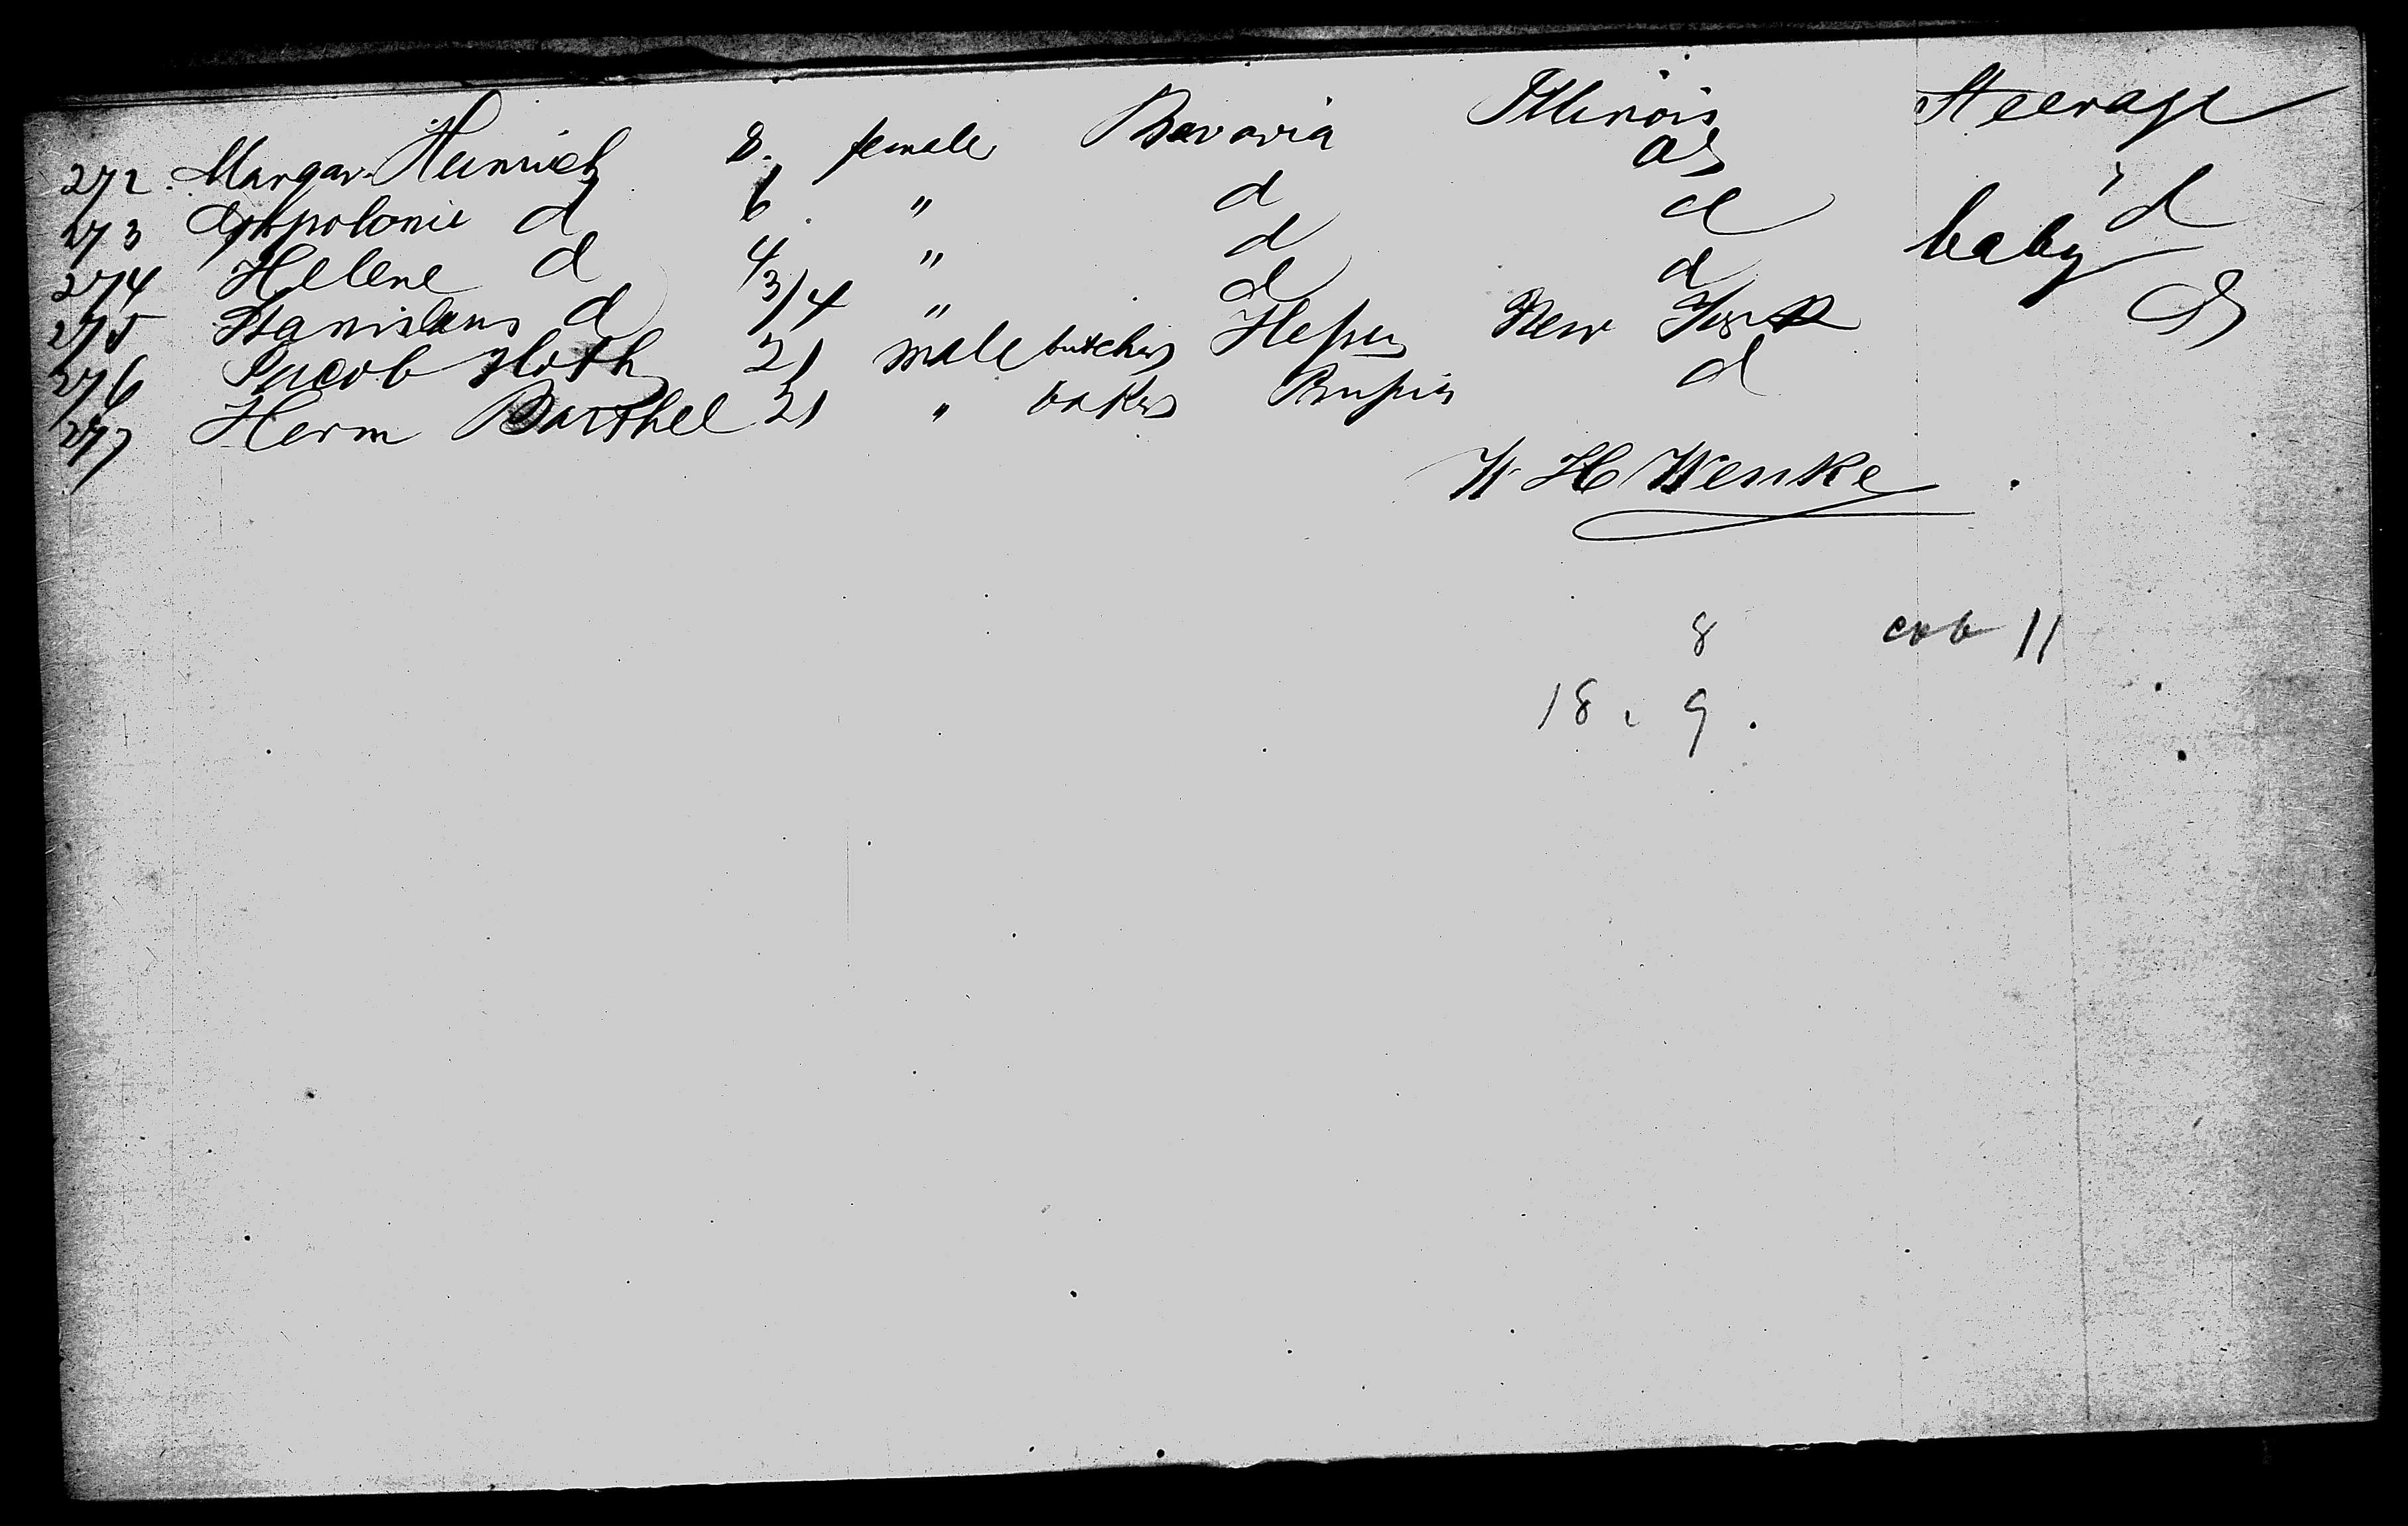 272. Margar. Heinrich 8. female Bavaria Illinois Steerage
273 Appolonie d 6 " d d "
274 Helene d 4 " d d d
275 Stanislaus d 3/4 " d d baby
276 Jacob Hoth 21 male butcher Hessen New York d
277 Herm Barthel 21 " baker Prussia d
W H Wenke
8 11
18. 9.